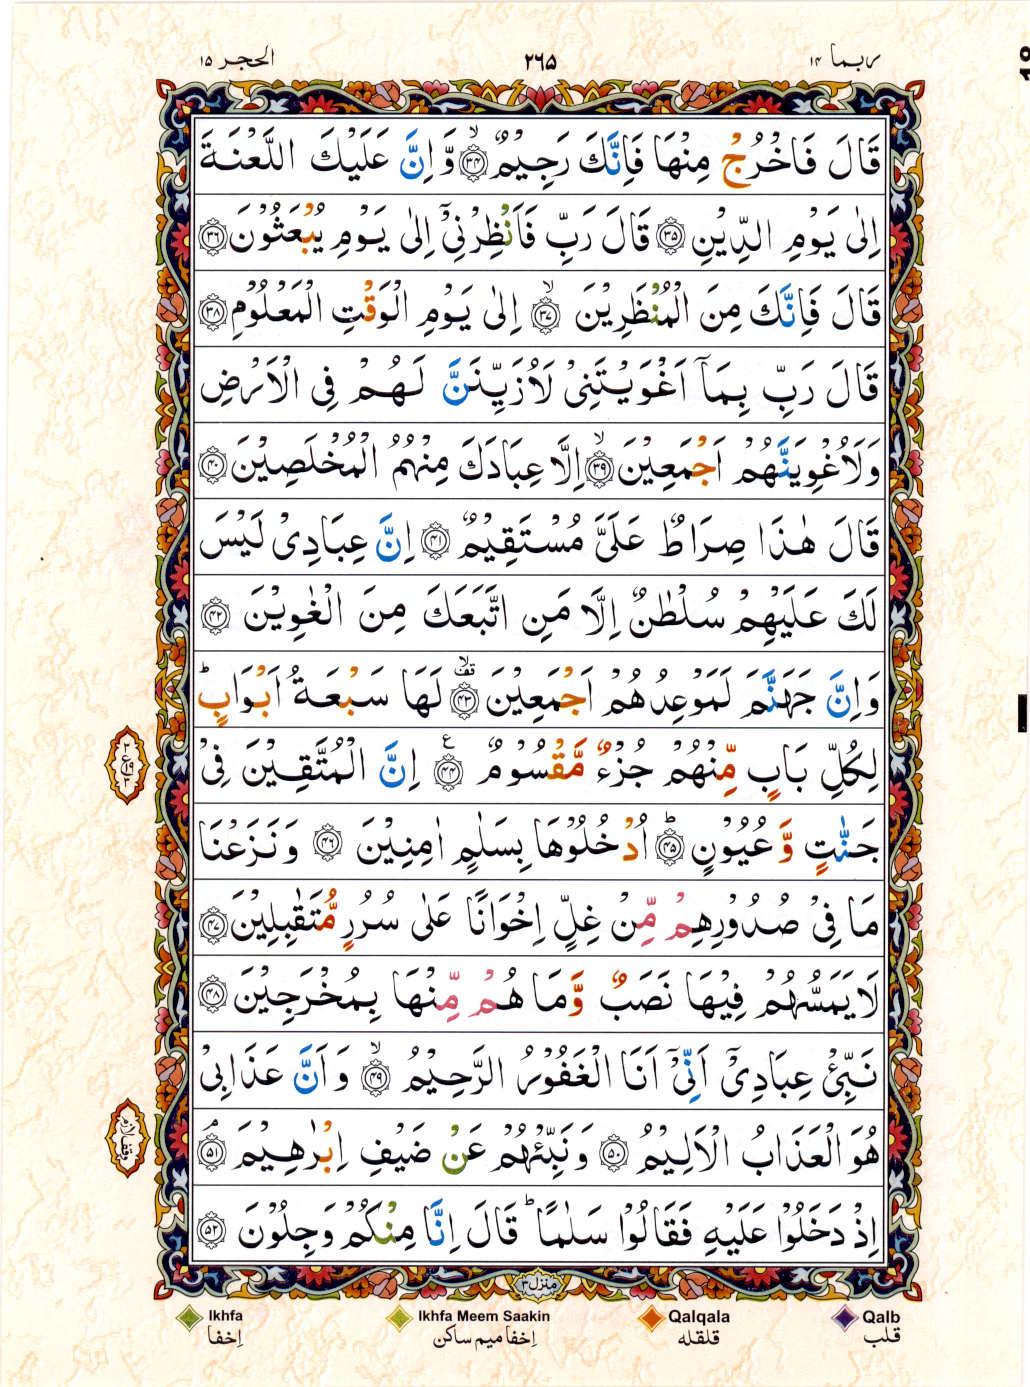 ربما ۱۴
۲۶۵
الحجر ۱۵
قَالَ فَاخْرُجْ مِنْهَا فَاِنَّكَ رَجِيْمٌ ۙ﴿۳۴﴾ وَّاِنَّ عَلَيْكَ اللَّعْنَةَ
اِلٰى يَوْمِ الدِّيْنِ ﴿۳۵﴾ قَالَ رَبِّ فَاَنْظِرْنِيْۤ اِلٰى يَوْمِ يُبْعَثُوْنَ ﴿۳۶﴾
قَالَ فَاِنَّكَ مِنَ الْمُنْظَرِيْنَ ۙ﴿۳۷﴾ اِلٰى يَوْمِ الْوَقْتِ الْمَعْلُوْمِ ﴿۳۸﴾
قَالَ رَبِّ بِمَاۤ اَغْوَيْتَنِيْ لَاُزَيِّنَنَّ لَهُمْ فِى الْاَرْضِ
وَلَاُغْوِيَنَّهُمْ اَجْمَعِيْنَ ۙ﴿۳۹﴾ اِلَّا عِبَادَكَ مِنْهُمُ الْمُخْلَصِيْنَ ﴿۴۰﴾
قَالَ هٰذَا صِرَاطٌ عَلَيَّ مُسْتَقِيْمٌ ﴿۴۱﴾ اِنَّ عِبَادِيْ لَيْسَ
لَكَ عَلَيْهِمْ سُلْطٰنٌ اِلَّا مَنِ اتَّبَعَكَ مِنَ الْغٰوِيْنَ ﴿۴۲﴾
وَاِنَّ جَهَنَّمَ لَمَوْعِدُهُمْ اَجْمَعِيْنَ ۙقف﴿۴۳﴾ لَهَا سَبْعَةُ اَبْوَابٍ ؕ
لِكُلِّ بَابٍ مِّنْهُمْ جُزْءٌ مَّقْسُوْمٌ ﴿۴۴﴾ع اِنَّ الْمُتَّقِيْنَ فِيْ
جَنّٰتٍ وَّعُيُوْنٍ ؕ﴿۴۵﴾ اُدْخُلُوْهَا بِسَلٰمٍ اٰمِنِيْنَ ﴿۴۶﴾ وَنَزَعْنَا
مَا فِيْ صُدُوْرِهِمْ مِّنْ غِلٍّ اِخْوَانًا عَلٰى سُرُرٍ مُّتَقٰبِلِيْنَ ﴿۴۷﴾
لَا يَمَسُّهُمْ فِيْهَا نَصَبٌ وَّمَا هُمْ مِّنْهَا بِمُخْرَجِيْنَ ﴿۴۸﴾
نَبِّئْ عِبَادِيْۤ اَنِّيْۤ اَنَا الْغَفُوْرُ الرَّحِيْمُ ۙ﴿۴۹﴾ وَاَنَّ عَذَابِيْ
هُوَ الْعَذَابُ الْاَلِيْمُ ﴿۵۰﴾ وَنَبِّئْهُمْ عَنْ ضَيْفِ اِبْرٰهِيْمَ ۘ﴿۵۱﴾
اِذْ دَخَلُوْا عَلَيْهِ فَقَالُوْا سَلٰمًا ؕ قَالَ اِنَّا مِنْكُمْ وَجِلُوْنَ ﴿۵۲﴾
وقف لازم
منزل ۳
Ikhfa
اِخفا
Ikhfa Meem Saakin
اِخفا میم ساکن
Qalqala
قلقله
Qalb
قلب